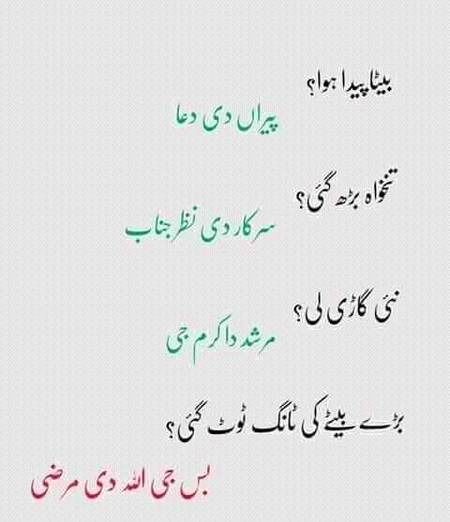 بیٹا پیدا ہوا؟
پیراں دی دعا
تنخواہ بڑھ گئی؟
سرکار دی نظر جناب
نئی گاڑی لی؟
مرشد دا کرم جی
بڑے بیٹے کی ٹانگ ٹوٹ گئی؟
بس جی اللہ دی مرضی